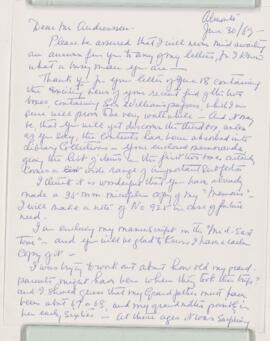 Almonte
June 30/69 -
Dear Mr Andreassen -
Please be assured that I will never mind awaiting
an answer from you to any of my letters, for I know
what a busy man you are -
Thank you for your letter of June 18 containing
the news of your recent find of the two
boxes, containing papers, which I am
sure will prove to be very worth while - And it may
be, that you will yet discover the third box, unless
as you say, the contents have been absorbed into
Library Collections - Your enclosed memoranda
gives the list of items in the first two boxes, certainly
covers a wide range of important subjects
I think it is wonderful that you have already
made a 35 mm microfilm copy of my "Memoirs"
I will make a note of No 925 in case of future
need.
I am enclosing my manuscript on the "Mid-East
Tour" - and you will be glad to know, I have a carbon
copy of it -
I was trying to work out about how old my grand
parents might have been when they took this trip?
and I should guess that my Grandfather must have
been about 67 or 68, and my grandmother
in her early sixties - At these ages it was surprising